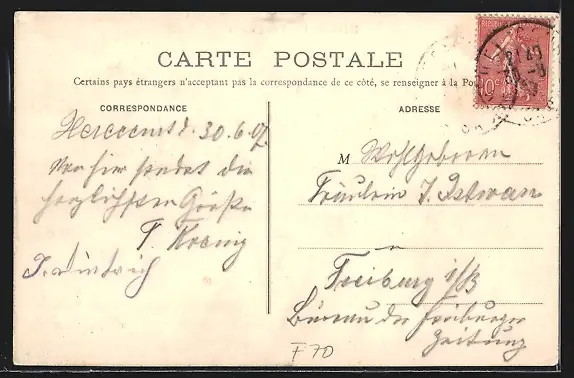 CARTE POSTALE
Certains pays étrangers n'acceptant pas la correspondance de ce côté, se renseigner à la Po
CORRESPONDANCE
ADRESSE
30.6.07.
Von hier sendet die
herzlichsten Grüße
T. Koenig
J. Dietrich
M Wohlgeboren
Fräulein J. Istwan
Freiburg i/B
Bureau der Freiburger
Zeitung
F70
10